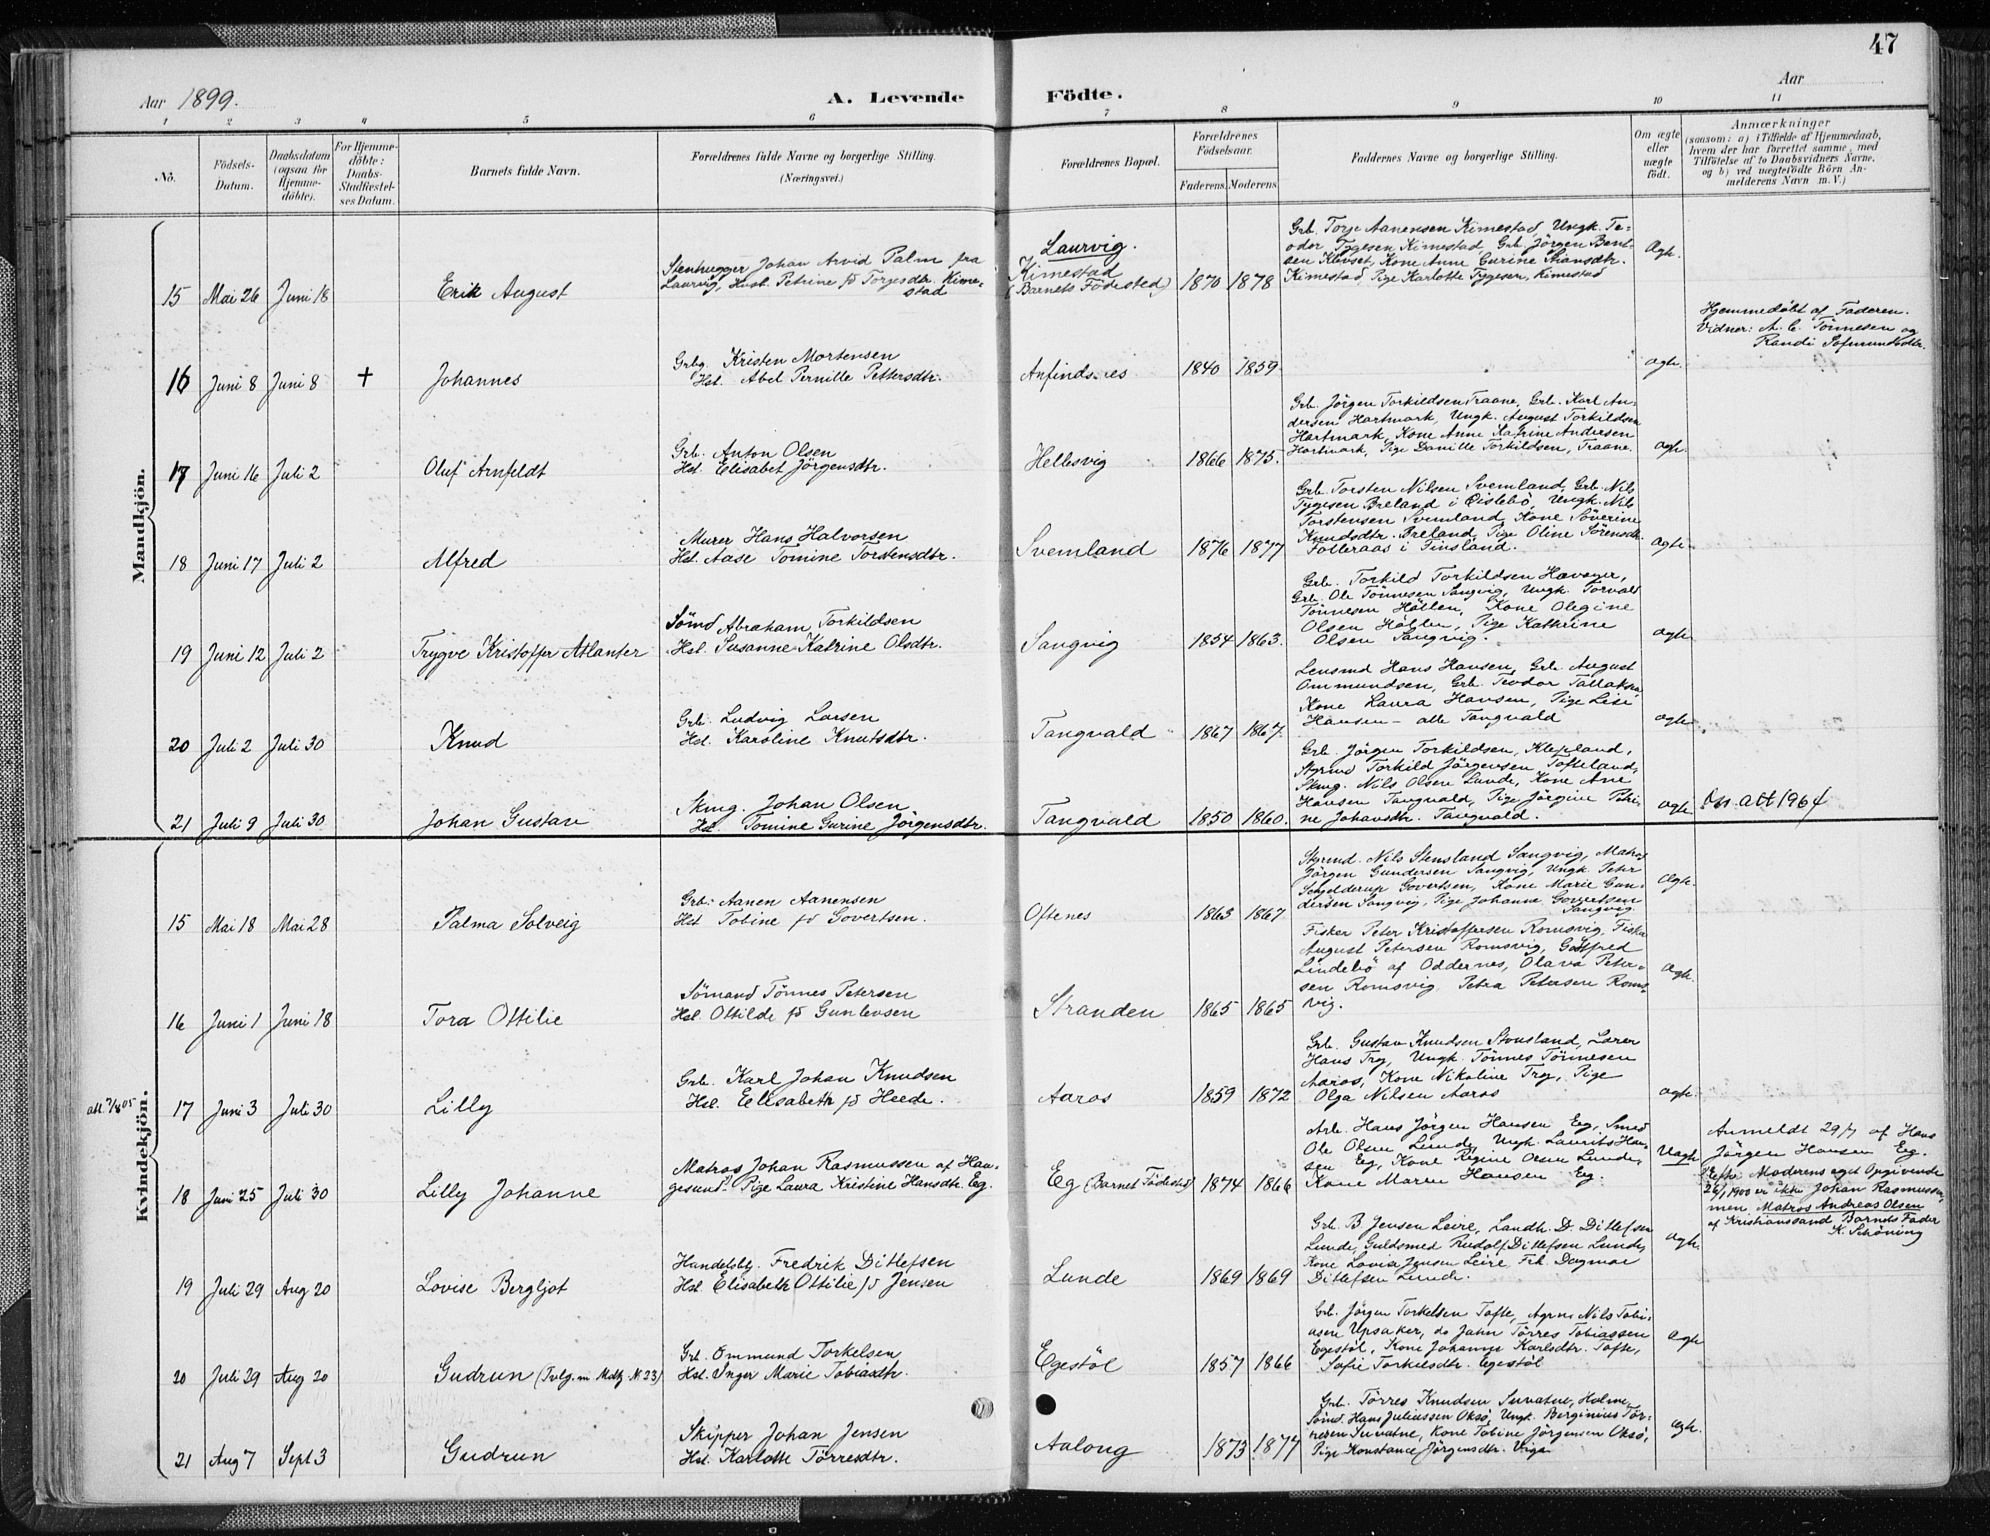 47
Aar 1899.
A. Levende Födte.
Aar
1 2 3 4 5 6 7 8 9 10 11
No.
Födsels-
Datum.
Daabsdatum
(ogsaa for
Hjemme-
döbte).
For Hjemme-
döbte:
Daabs-
Stadfæstel-
ses Datum.
Barnets fulde Navn.
Forældrenes fulde Navne og borgerlige Stilling.
(Næringsvei.)
Forældrenes Bopæl.
Forældrenes
Födselsaar.
Faderens. Moderens.
Faddernes Navne og borgerlige Stilling.
Om ægte
eller
uægte
födt.
Anmærkninger
(saasom: a) i Tilfælde af Hjemmedaab,
hvem der har forrettet samme, med
Tilföielse af to Daabsvidners Navne,
og b) ved uægtefödte Börn An-
melderens Navn m. V.)
Mandkjön.
15 Mai 26 Juni 18
Erik August
Stenhugger Johan Arvid Palm fra
Laurvig, Hust. Petrine fd Törgesdtr. Kime-
stad
Laurvig.
Kimestad
(Barnets Födested)
1870 1878
Grb. Torje Aanensen Kimestad, Ungk. Te-
odor Tygesen Kimestad, Grb. Jörgen Bent-
sen Klevset, Kone Anne Gurine Stiansdtr.
Kimestad, Pige Karlotte Tygesen, Kimestad
Ægte.
16 Juni 8 Juni 8 +
Johannes
Grbg. Kristen Mortensen
Hst. Abel Pernille Pettersdtr.
Anfindsnes
1840 1859
ægte.
Hjemmedöbt af Faderen.
Vidner: A. C. Tönnesen og
Randi Sofmundsdtr.
17 Juni 16 Juli 2
Oluf Arnfeldt
Grb. Anton Olsen
Hst. Elisabet Jörgensdtr.
Hellesvig
1866 1875.
Grb. Jörgen Torkildsen Traane, Grb. Karl An-
dersen Hartmark, Ungk. August Torkildsen
Hartmark, Kone Anne Katrine Andersen
Hartmark, Pige Danille Torkildsen, Traane.
ægte.
18 Juni 17 Juli 2
Alfred
Murer Hans Halvorsen
Hst. Aase Tomine Torstensdtr.
Svemland
1876 1877
Grb. Torsten Nilsen Svemland, Grb. Nils
Tygesen Breland i Öislebö, Ungk. Nils
Torstensen Svemland, Kone Söverine
Knudsdtr. Breland, Pige Oline Sörensdtr.
Folleraas i Finsland.
ægte.
19 Juni 12 Juli 2
Trygve Kristoffer Atlanter
Sömd Abraham Torkildsen
Hst. Susanne Katrine Olsdtr.
Sangvig
1854 1863.
Grb. Torkild Torkildsen Havager,
Grb. Ole Tönnesen Sangvig, Ungk. Torvald
Tönnesen Höllen, Kone Olegine
Olsen Höllen, Pige Kathrine
Olsen Sangvig.
ægte
20 Juli 2 Juli 30
Knud
Grb. Ludvig Larsen
Hst. Karoline Knutsdtr.
Tangvald
1867 1867.
Lensmd Hans Hansen, Grb. August
Ommundsen, Grb. Teodor Tallaksen,
Kone Laura Hansen, Pige Lise
Hansen - alle Tangvald
ægte
21 Juli 9 Juli 30
Johan Gustav
Skmg. Johan Olsen
Hst. Tomine Gurine Jörgensdtr.
Tangvald
1850 1860.
Grb. Jörgen Torkildsen, Klepland,
Styrmd Torkild Jörgensen Tofteland,
Skmg. Nils Olsen Lunde, Kone Ane
Hansen Tangvald, Pige Jörgine Petri-
ne Johansdtr. Tangvald.
ægte
att 1964
Kvindekjön.
15 Mai 18 Mai 28
Palma Solveig
Grb. Aanen Aanensen
Hst Tobine fd Govertsen.
Oftenes
1863 1867
Styrmd. Nils Stensland Sangvig, Matros
Jörgen Gundersen Sangvig, Ungk. Peter
Schjelderup Govertsen, Kone Marie Gun-
dersen Sangvig, Pige Johanne Govertsen
Sangvig.
Ægte.
16 Juni 1 Juni 18
Tora Ottilie
Sömand Tönnes Petersen
Hst. Ottilde fd Gunlevsen
Stranden
1865 1865
Fisker Peter Kristoffersen Romsvig, Fisker
August Petersen Romsvig, Gottfred
Lindebö af Oddernes, Olava Peter-
sen Romsvig, Petra Petersen Roms-
vig.
Ægte.
att 7/8 05
17 Juni 3 Juli 30
Lilly
Grb. Karl Johan Knudsen
Hst. Elisabeth fd Heede.
Aaros
1859 1872
Grb. Gustav Knudsen Stousland, Lærer
Hans Try, Ungk. Tönnes Tönnesen
Aaros, Kone Nikoline Try, Pige
Olga Nilsen Aaros
ægte.
18 Juni 25 Juli 30
Lilly Johanne
Matros Johan Rasmussen af Hau-
gesund. Pige Laura Kristine Hansdtr. Eg.
Eg (Barnet Födested)
1874 1866
Arb. Hans Jörgen Hansen Eg, Smed
Ole Olsen Lunde, Ungk. Laurits Han-
sen Eg, Kone Regine Olsen Lunde,
Kone Maren Hansen Eg.
Uægte
Anmeldt 29/7 af Hans
Jörgen Hansen Eg.
Efter Moderens eget Opgivende
26/1 1900 er ikke Johan Rasmussen
men Matros Andreas Olsen
af Kristianssand Barnets Fader
K. Schöning
19 Juli 29 Aug 20
Lovise Bergljot
Handelsbg. Fredrik Ditlefsen
Hst. Elisabeth Ottilie fd Jensen
Lunde
1869 1869
Grb. B. Jensen Leire, Landh. D. Ditlefsen
Lunde, Guldsmed Rudolf Ditlefsen Lunde,
Kone Lovise Jensen Leire, Frk. Dagmar
Ditlefsen Lunde.
Ægte.
20 Juli 29 Aug 20
Gudrun (Tvlg. m Mdkj N 23)
Grb. Ommund Torkelsen
Hst. Inger Marie Tobiasdtr.
Egestöl
1857 1866
Grb. Jörgen Torkelsen Tofte, Nils Tobi-
asen Upsaker, do Jahn Törres Tobiassen
Egestöl, Kone Johanne Karlsdtr. Tofte,
Sofie Torkilsdtr. Egestöl
Ægte
21 Aug 7 Sept 3
Gudrun
Skipper Johan Jensen
Hst. Karlotte Törresdtr.
Aalong
1873 1877
Grb. Törres Knudsen Suvatne, Holme,
Sömd. Hans Juliussen Oksö, Ungk. Berginius Tör-
resen Suvatne, Kone Tobine Jörgensen Oksö,
Pige Konstance Jörgensdtr. Vige
Ægte.